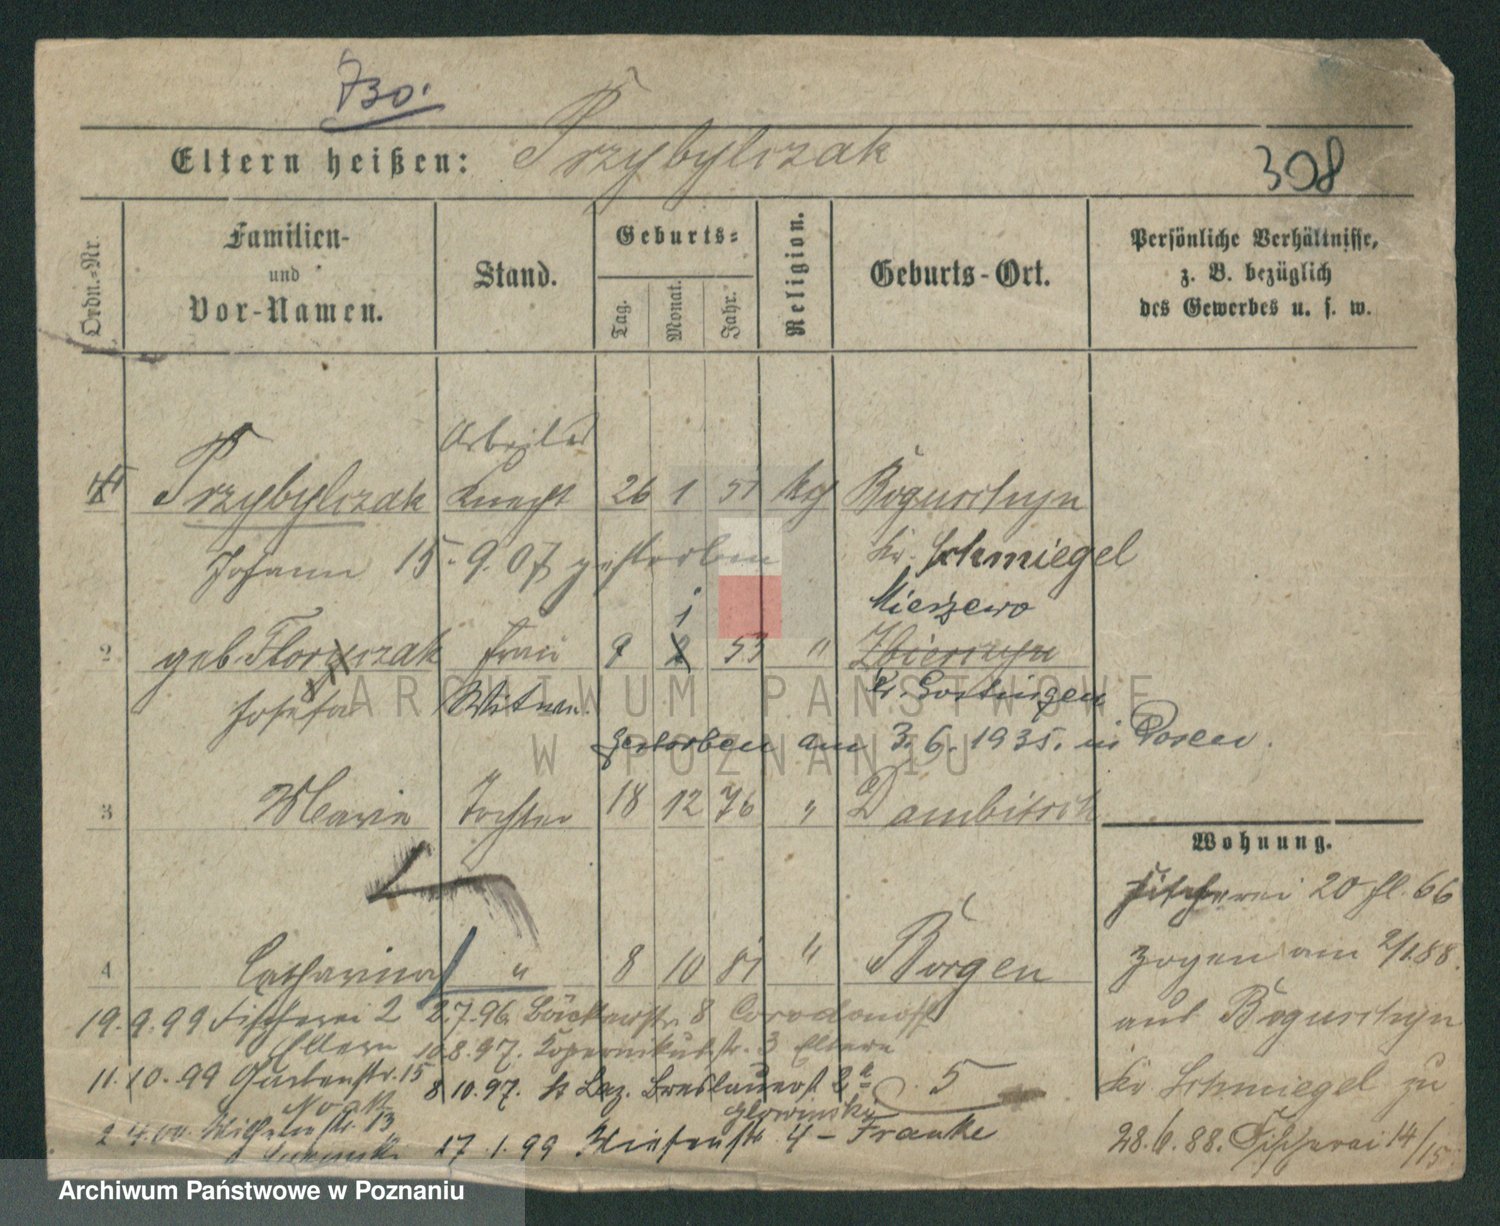 730.
Eltern heißen: Przybylczak
308
Ordn.-Nr.
Familien-
und
Vor-Namen.
Stand.
Geburts-
Tag.
Monat.
Jahr.
Religion.
Geburts-Ort.
Persönliche Verhältnisse,
z. B. bezüglich
des Gewerbes u. s. w.
Arbeiter
Przybylczak Knecht 26 1 51 kg Boguschyn
Johann 15.9.07 gestorben Kr. Schmiegel
1 Mierzewo
2 geb. Florczak Frau 9 2 53 " Zbierczyn
Josefa Witwe
gestorben am 3.6.1935. in Posen.
3 Maria Tochter 18 12 76 " Dambitsch
Wohnung.
Fischerei 20 Hl. 66
4 Catharina " 8 10 81 " Borgen
zogen am 2/1 88.
aus Boguschyn
Kr Schmiegel zu
28.6.88. Fischerei 14/15
19.9.99 Fischerei 2 2.7.96. Bäckerstr. 8
Eltern 10.8.97. Kopernikusstr. 3 Eltern
11.10.99 Gartenstr. 15 8.10.97. Laz. Breslauerst 5
2.4.00. Wilhelmstr. 13 Glowinski
17.1.99 Wiesenstr. 4 - Franke
ARCHIWUM PAŃSTWOWE
W POZNANIU
Archiwum Państwowe w Poznaniu